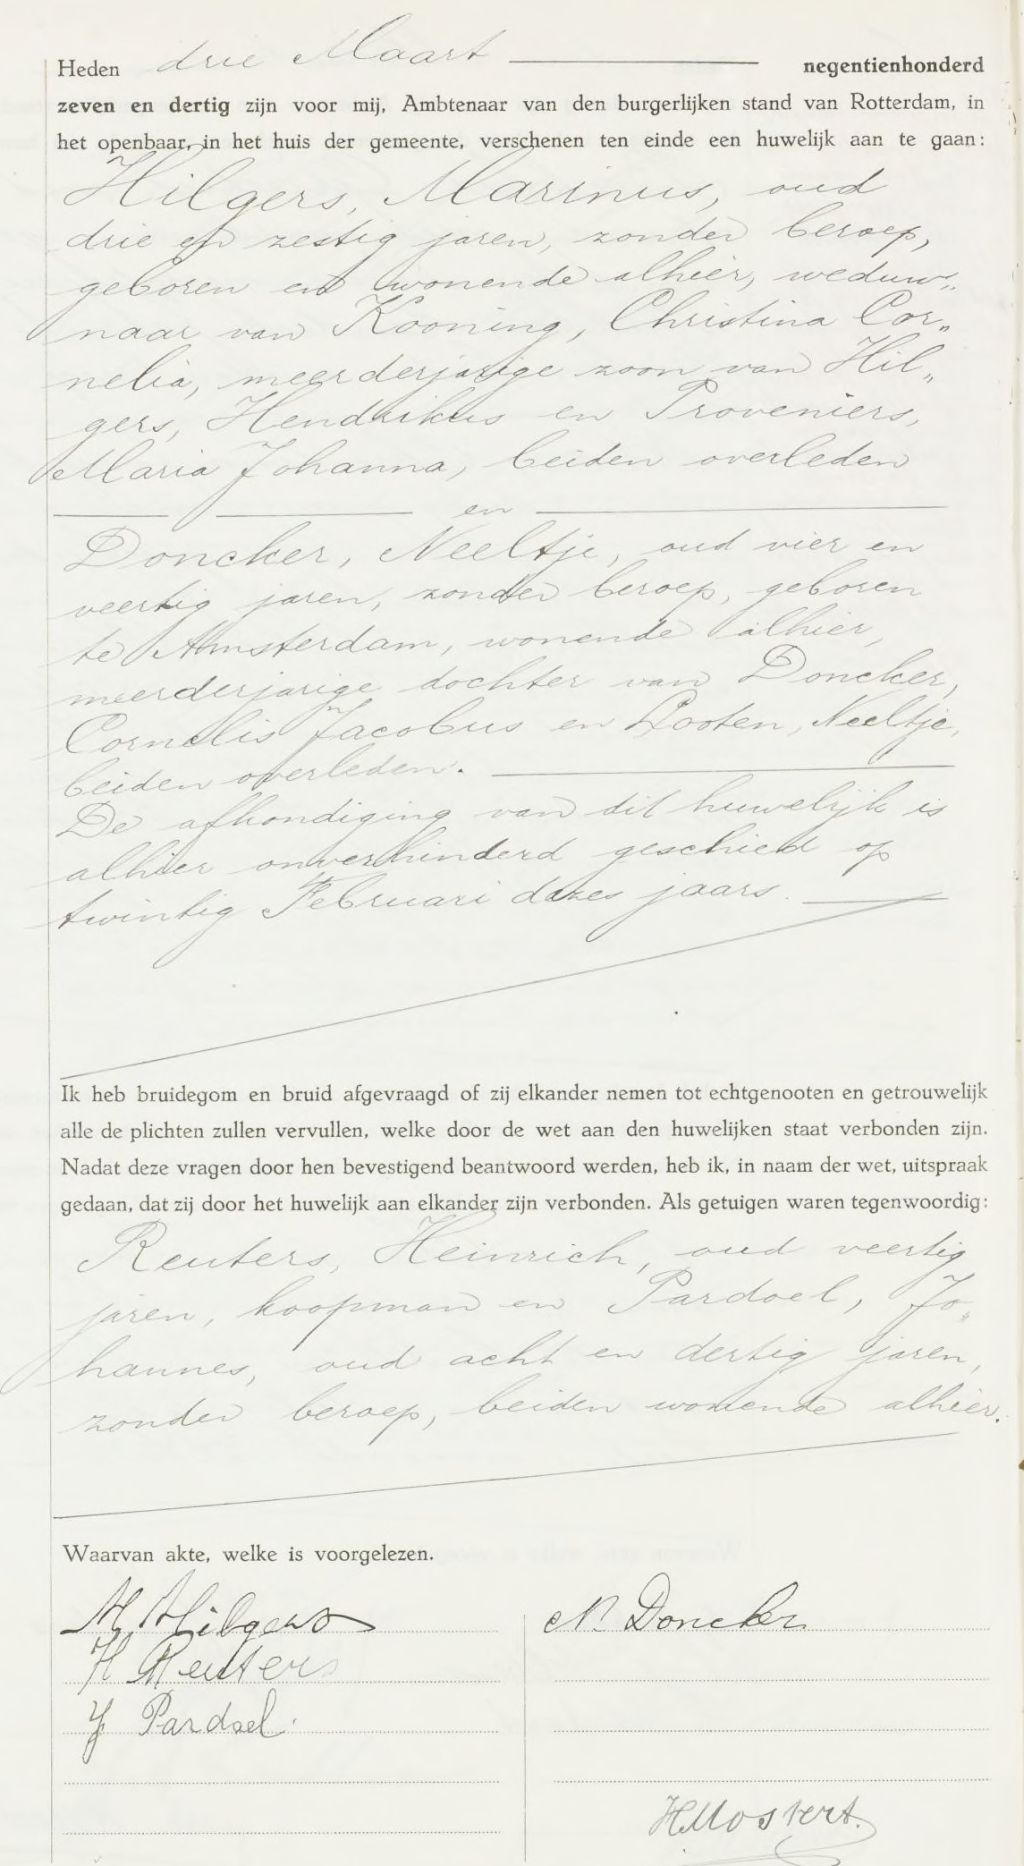 Heden drie Maart negentienhonderd
zeven en dertig zijn voor mij, Ambtenaar van den burgerlijken stand van Rotterdam, in
het openbaar, in het huis der gemeente, verschenen ten einde een huwelijk aan te gaan:
Hilgers, Marinus, oud
drie en zestig jaren, zonder beroep,
geboren en wonende alhier, weduw„
naar van Kooning, Christina Cor„
nelia, meerderjarige zoon van Hil„
gers, Hendrikus en Proveniers,
Maria Johanna, beiden overleden
en
Doncker, Neeltje, oud vier en
veertig jaren, zonder beroep, geboren
te Amsterdam, wonende alhier,
meerderjarige dochter van Doncker,
Cornelis Jacobus en Looten, Neeltje,
beiden overleden.
De afkondiging van dit huwelijk is
alhier onverhinderd geschied op
twintig Februari dezes jaars.
Ik heb bruidegom en bruid afgevraagd of zij elkander nemen tot echtgenooten en getrouwelijk
alle de plichten zullen vervullen, welke door de wet aan den huwelijken staat verbonden zijn.
Nadat deze vragen door hen bevestigend beantwoord werden, heb ik, in naam der wet, uitspraak
gedaan, dat zij door het huwelijk aan elkander zijn verbonden. Als getuigen waren tegenwoordig:
Reuters, Heinrich, oud veertig
jaren, koopman en Pardoel, Jo„
hannes, oud acht en dertig jaren,
zonder beroep, beiden wonende alhier.
Waarvan akte, welke is voorgelezen.
M Hilgers
N. Doncker
H Reuters
J Pardoel.
HMostert.